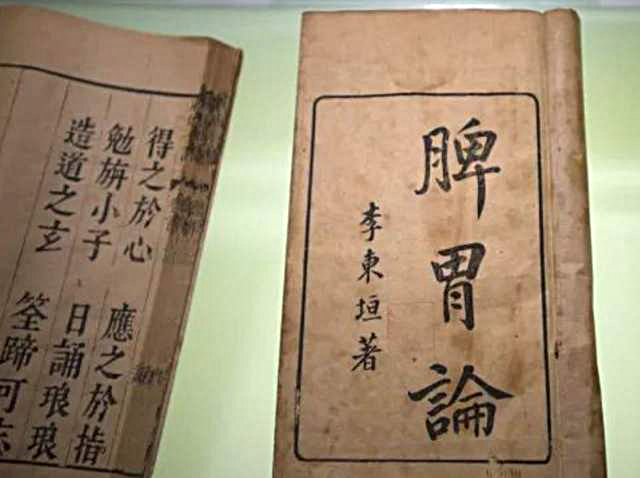 脾胃論
李東垣著
得之於心 應之於指
勉旃小子 日誦琅琅
造道之玄 筌蹄可